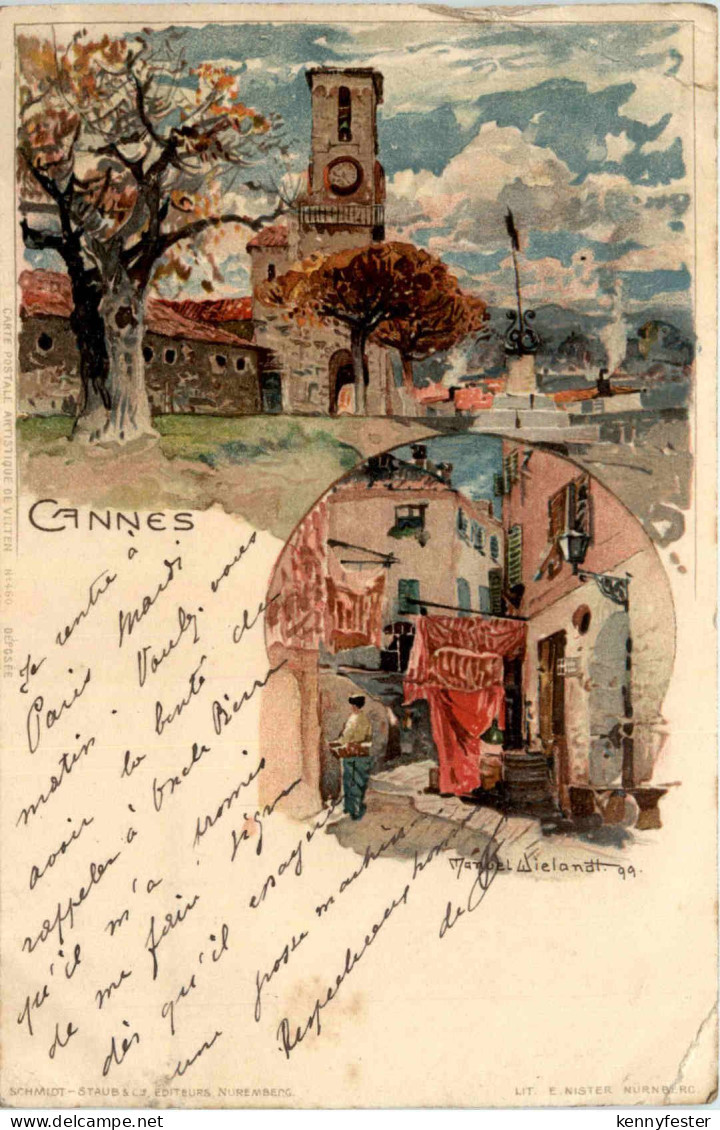 CARTE POSTALE ARTISTIQUE DE VELTEN No 460 DÉPOSÉE
CANNES
Je rentre à
Paris Mardi
matin. Voulez-vous
avoir la bonté de
rappeler à Oncle Pierre
qu'il m'a promis
de me faire signe
dès qu'il essayera
une grosse machine
Respectueux hommages
de
Manuel Wielandt. 99.
SCHMIDT-STAUB & Co, EDITEURS, NUREMBERG.
LIT. E. NISTER NÜRNBERG.
kennyfester